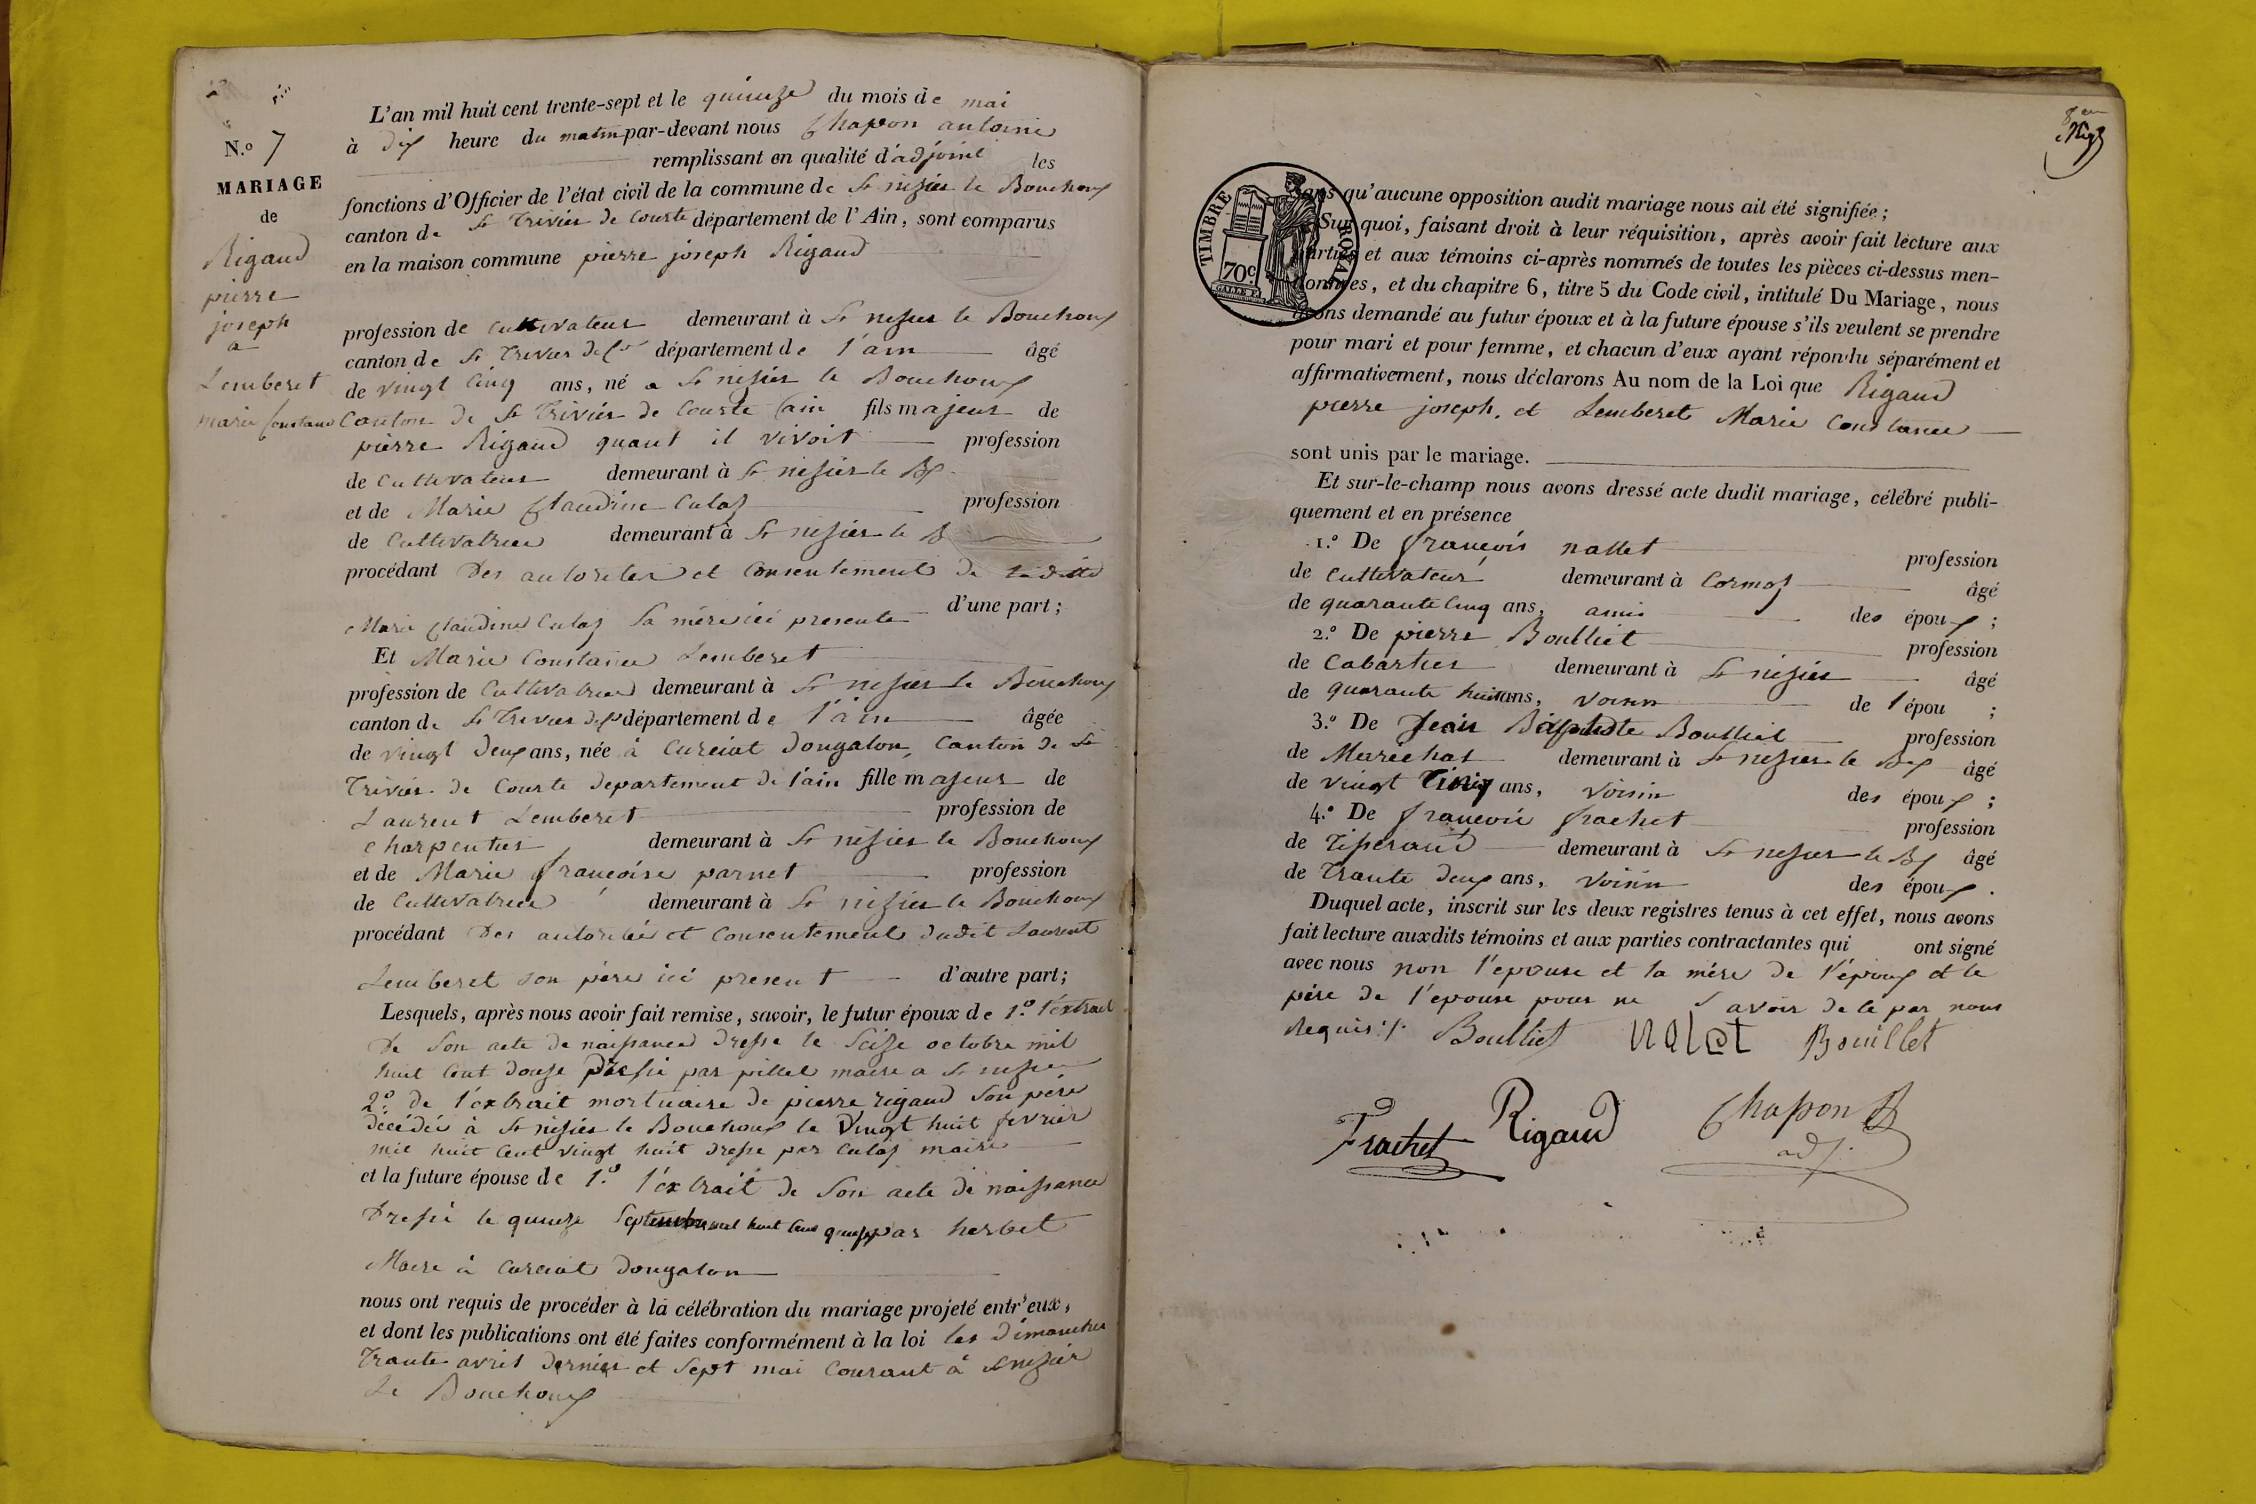 N.o 7
MARIAGE
de
Rigaud
pierre
joseph
a
Lemberet
marie Constance
L'an mil huit cent trente-sept et le quinze du mois de mai
à dix heure du matin par-devant nous Chapon antoine
remplissant en qualité d'adjoint les
fonctions d'Officier de l'état civil de la commune de St nizier le Bouchoux
canton de St Trivier de Courte département de l'Ain, sont comparus
en la maison commune pierre joseph Rigaud
profession de cultivateur demeurant à St nizier le Bouchoux
canton de St Trivier de Cte département de l'ain âgé
de vingt Cinq ans, né a St nizier le Bouchoux
Canton de St Trivier de Courte (ain fils majeur de
pierre Rigaud quant il vivoit profession
de Cultivateur demeurant à St nizier le Bx
et de Marie Claudine Culas profession
de Cultivatrice demeurant à St nizier le B
procédant Des autorites et Consentement de ladite
Marie Claudine Culas Sa mére ici presente d'une part;
Et Marie Constance Lemberet
profession de Cultivatrice demeurant à St nizier le Bouchoux
canton de St Trivier de Cte département de l'ain âgée
de vingt deux ans, née à Curciat dongalon, Canton de St
Trivier de Courte departement de l'ain fille majeur de
Laurent Lemberet profession de
Charpentier demeurant à St nizier le Bouchoux
et de Marie françoise parnet profession
de Cultivatrice demeurant à St nizier le Bouchoux
procédant Des autorités et Consentement dudit Laurent
Lemberet son pére ici present d'autre part;
Lesquels, après nous avoir fait remise, savoir, le futur époux de 1.o l'extrait
De Son acte de naissance dressé le Seize octobre mil
huit Cent douze par pillet maire a St nizier
2.o de l'extrait mortuaire de pierre rigaud Son pére
décédé à St nizier le Bouchoux le Vingt huit fevrier
mil huit Cent vingt huit dresse par Culas maire
et la future épouse de 1.o l'extrait de Son acte de naissance
Dressé le quinze Septembre mil huit Cent quinze par herbet
Maire à Curciat dongalon
nous ont requis de procéder à la célébration du mariage projeté entr'eux,
et dont les publications ont été faites conformément à la loi les dimanches
Trante avril dernier et Sept mai Courant à St nizier
Le Bouchoux
TIMBRE ROYAL
70c
sans qu'aucune opposition audit mariage nous ait été signifiée;
Sur quoi, faisant droit à leur réquisition, après avoir fait lecture aux
parties et aux témoins ci-après nommés de toutes les pièces ci-dessus men-
tionnées, et du chapitre 6, titre 5 du Code civil, intitulé Du Mariage, nous
avons demandé au futur époux et à la future épouse s'ils veulent se prendre
pour mari et pour femme, et chacun d'eux ayant répondu séparément et
affirmativement, nous déclarons Au nom de la Loi que Rigaud
pierre joseph. et Lemberet Marie Constance
sont unis par le mariage.
Et sur-le-champ nous avons dressé acte dudit mariage, célébré publi-
quement et en présence
1.o De françois nallet profession
de Cultivateur demeurant à Cormoz âgé
de quarante Cinq ans, amis des époux;
2.o De pierre Boulliet profession
de Cabartier demeurant à St nizier âgé
de quarante huit ans, voisin de l'épou ;
3.o De Jean Baptiste Boulliet profession
de Maréchal demeurant à St nizier le Bx âgé
de vingt Cinq ans, voisin des époux;
4.o De françois frachet profession
de Tisserand demeurant à St nizier le Bx âgé
de Trante deux ans, voisin des époux.
Duquel acte, inscrit sur les deux registres tenus à cet effet, nous avons
fait lecture auxdits témoins et aux parties contractantes qui ont signé
avec nous non l'epouse et la mére de l'époux et le
pére de l'epouse pour ne Savoir de ce par nous
Requis ./.
Boulliet nalet Bouillet
Frachet Rigaud Chapon
adj.